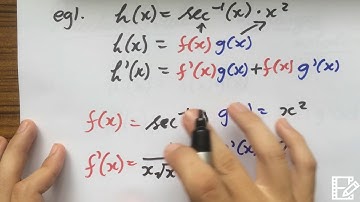 eg1. h(x) = sec⁻¹(x) · x²
h(x) = f(x) g(x)
h'(x) = f'(x)g(x)+f(x) g'(x)
f(x) = sec⁻ g = x²
f'(x) = x√x